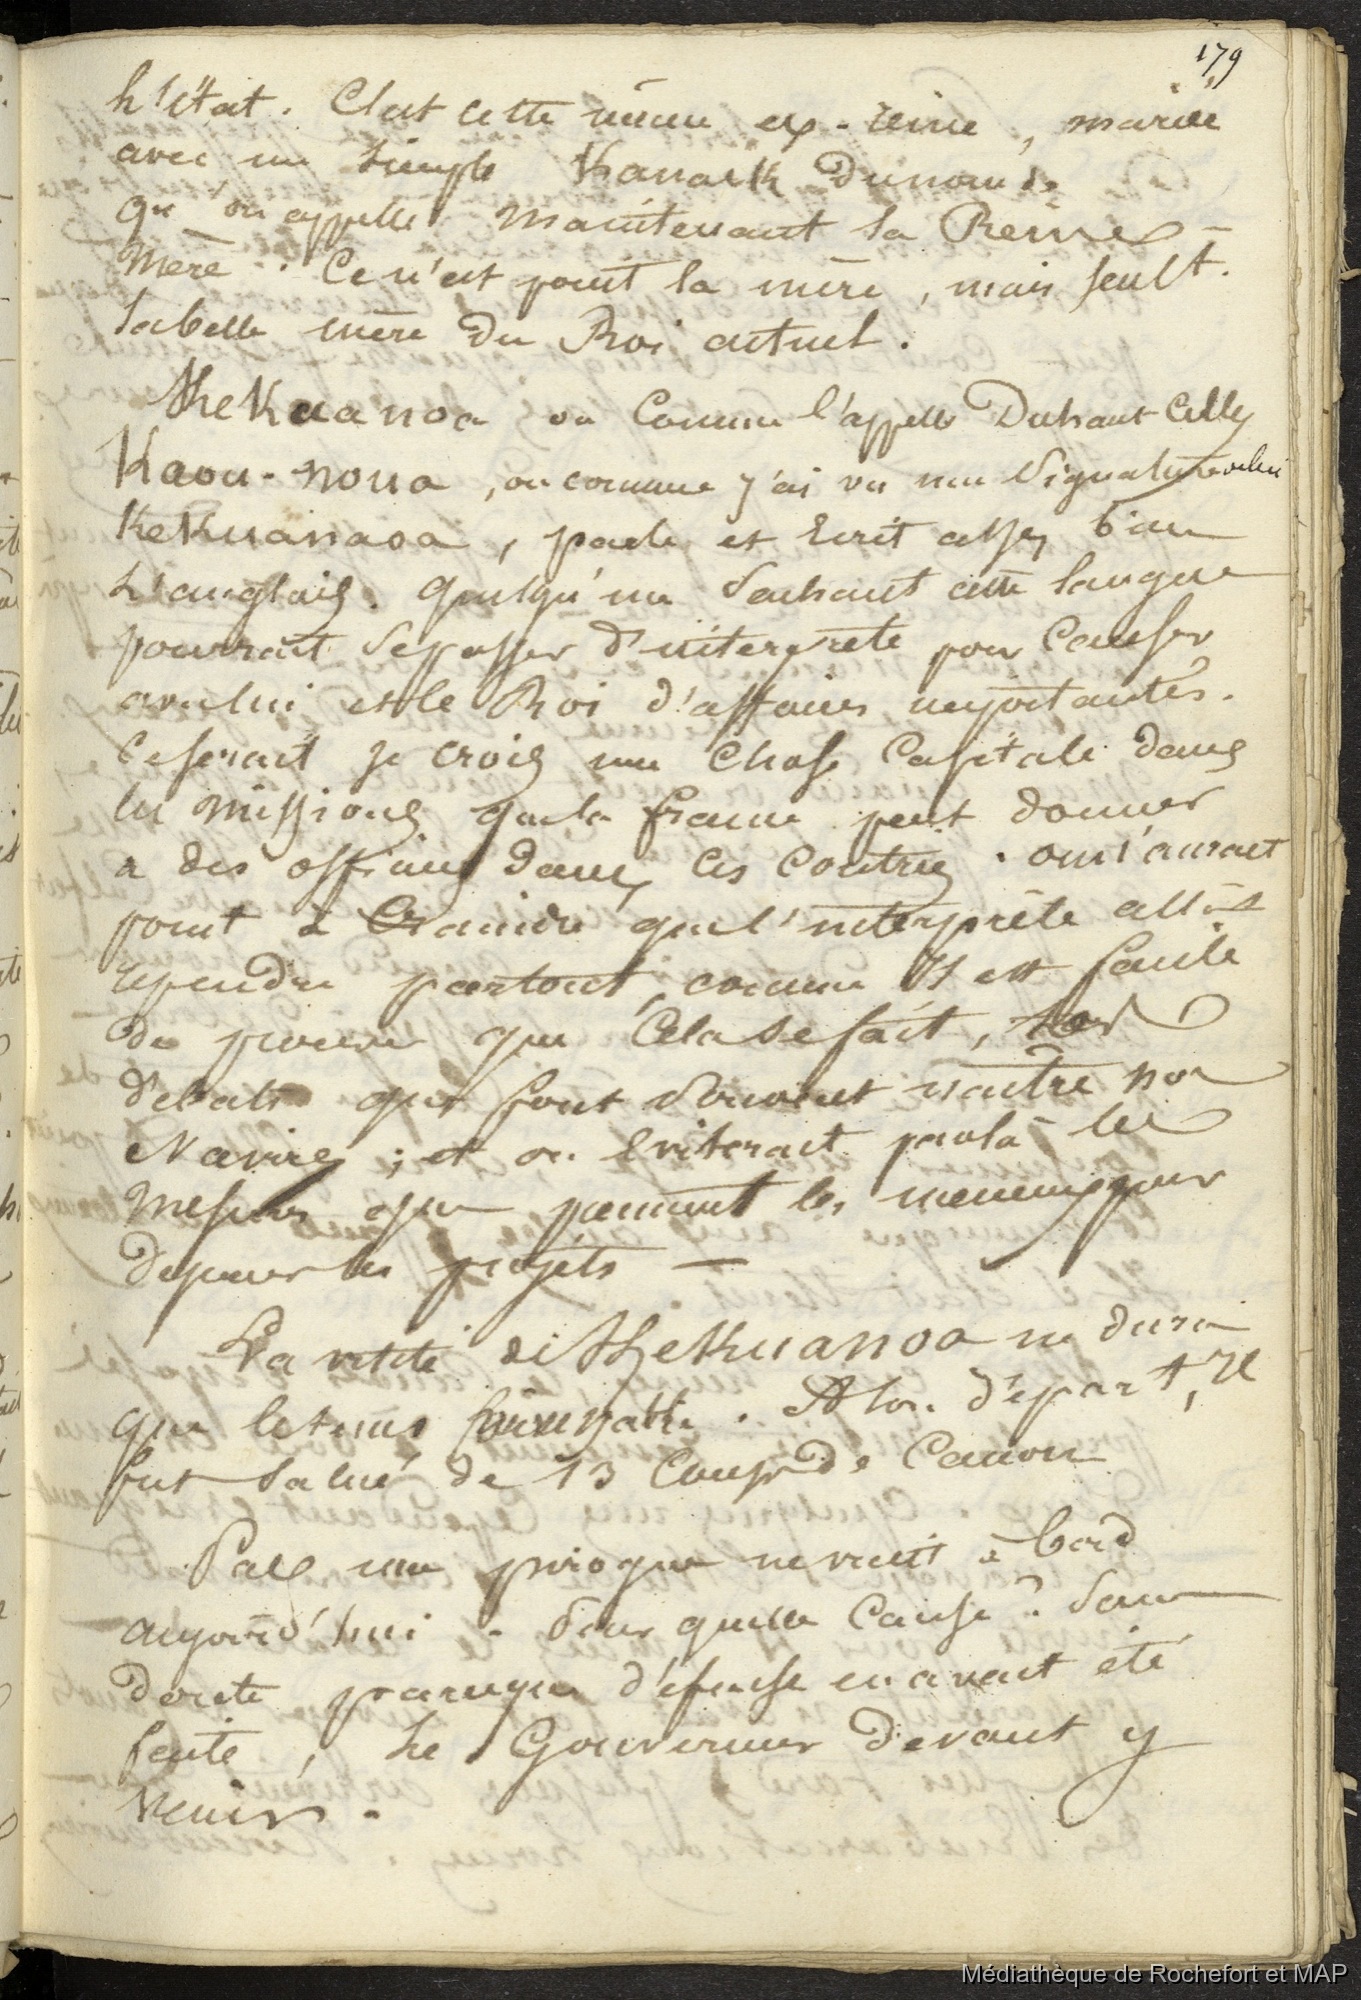 179
l'état. C'est cette même ex-reine, mariée
avec un simple Kanack du nom de
qu'on appelle maintenant la Reine-
mère. Ce n'est point la mère, mais seult.
la belle mère du Roi actuel.
KeKuanoa ou comme l'appelle Duhaut Cilly
Kaou-noua, ou comme j'ai vu une signature de lui
KeKuanaoa, parle et écrit assez bien
L'anglais. Quelqu'un sachant cette langue
pourrait se passer d'interprète pour causer
avec lui et le Roi d'affaires importantes.
Ce serait je crois une chose Capitale dans
les missions que la france peut donner
a des officiers dans ces contrées. on n'aurait
point à craindre que l'interprète allât
rependre partout, comme Il est facile
de prouver que cela se fait, les
débats que font souvent naître nos
Navires; et on Eviterait par là les
mesures que prennent les pour
les projets —
La visite de KeKuanoa ne dura
que le tems . A son départ, Il
fut salué de 13 coups de Canon
Pas une pirogue ne vint à bord
aujourd'hui. Pour quelle cause? Sans
doute parceque défense en avait été
faite, Le Gouverneur devant y
venir.
Médiathèque de Rochefort et MAP